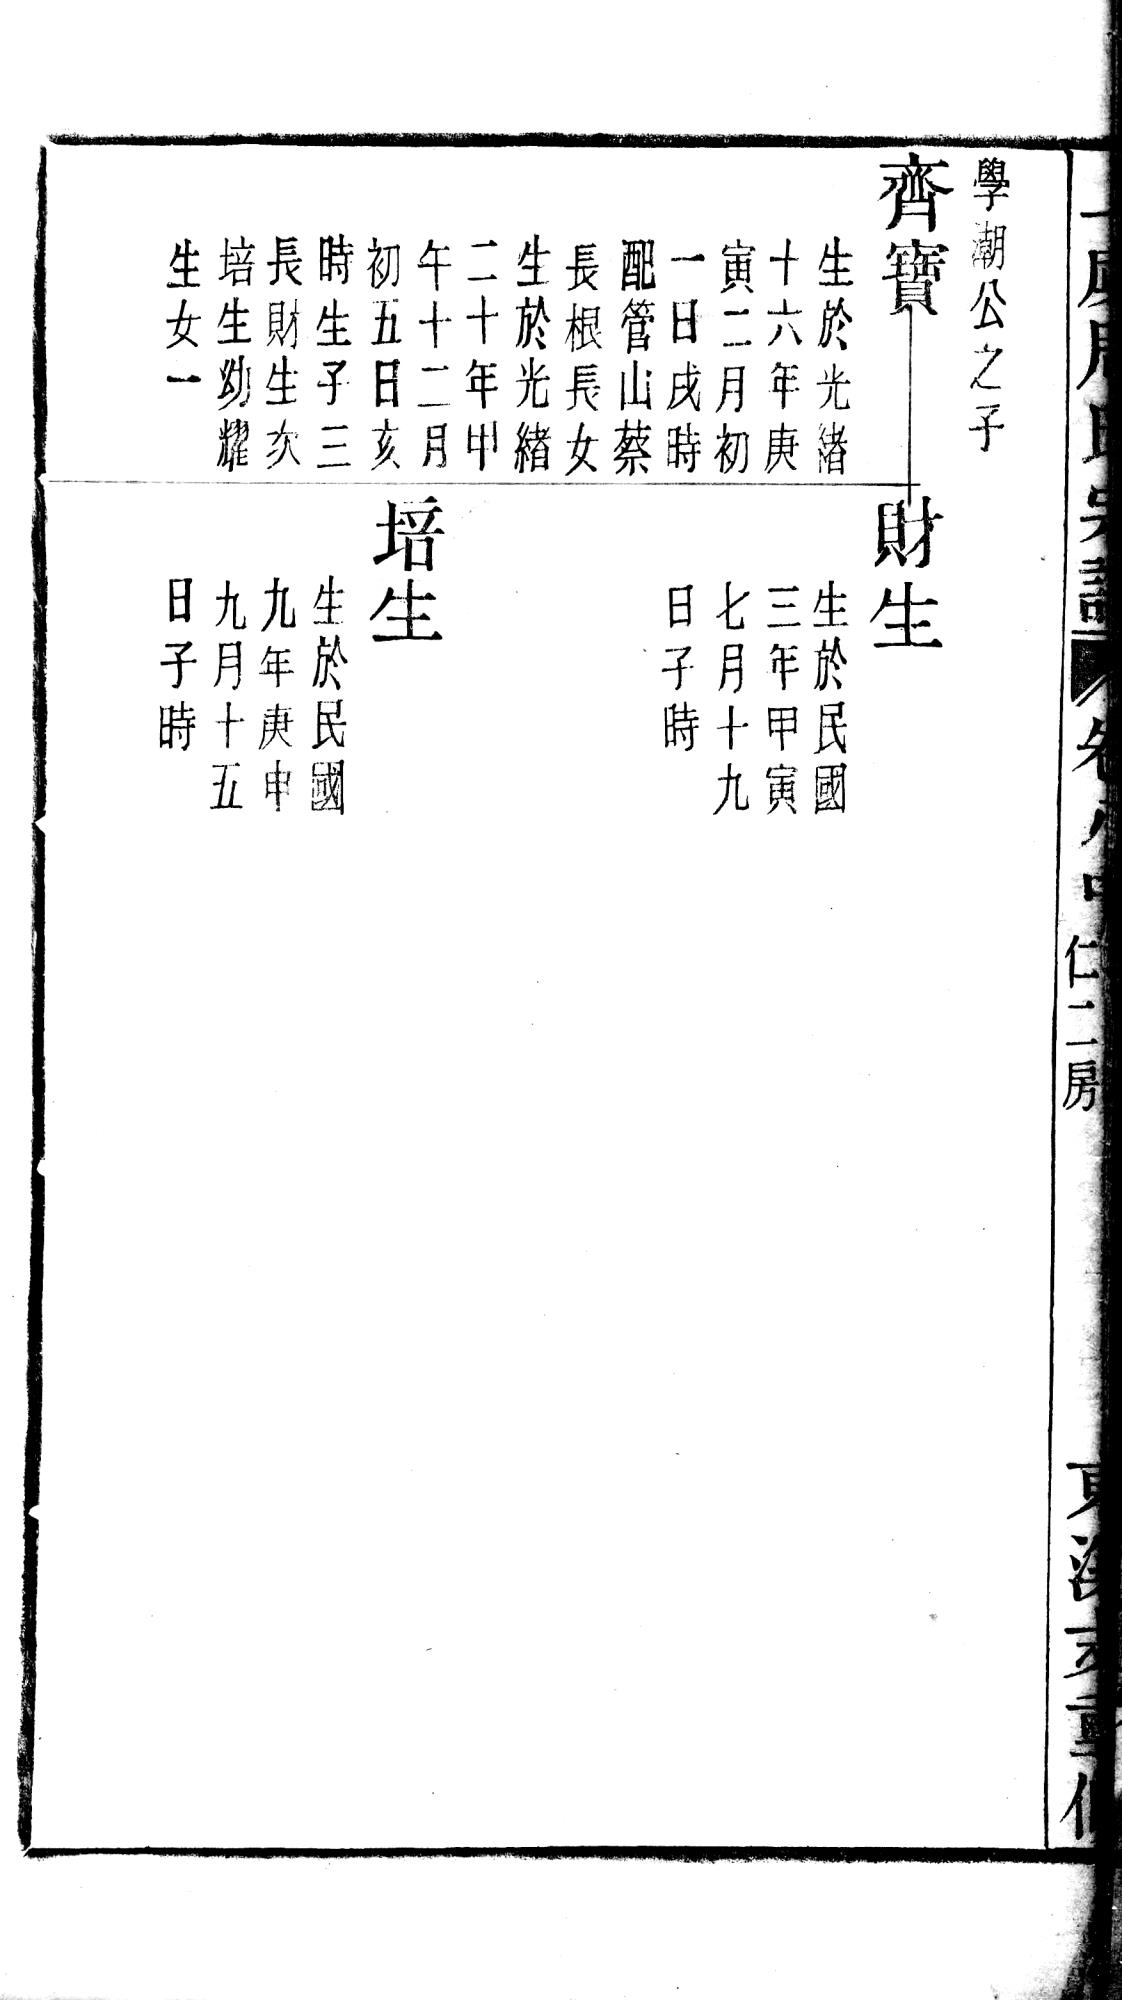 學潮公之子
齊寶
生於光緒
十六年庚
寅二月初
一日戌時
配管山蔡
長根長女
生於光緒
二十年甲
午十二月
初五日亥
時生子三
長財生次
培生幼耀
生女一
財生
生於民國
三年甲寅
七月十九
日子時
培生
生於民國
九年庚申
九月十五
日子時
仁二房